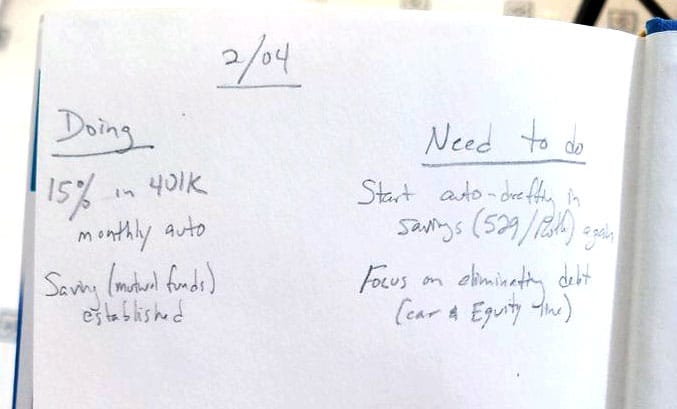 2/04
Doing
15% in 401K
monthly auto
Saving (mutual funds)
established
Need to do
Start auto-drafting in
savings (529/Roth) again
Focus on eliminating debt
(car & Equity line)